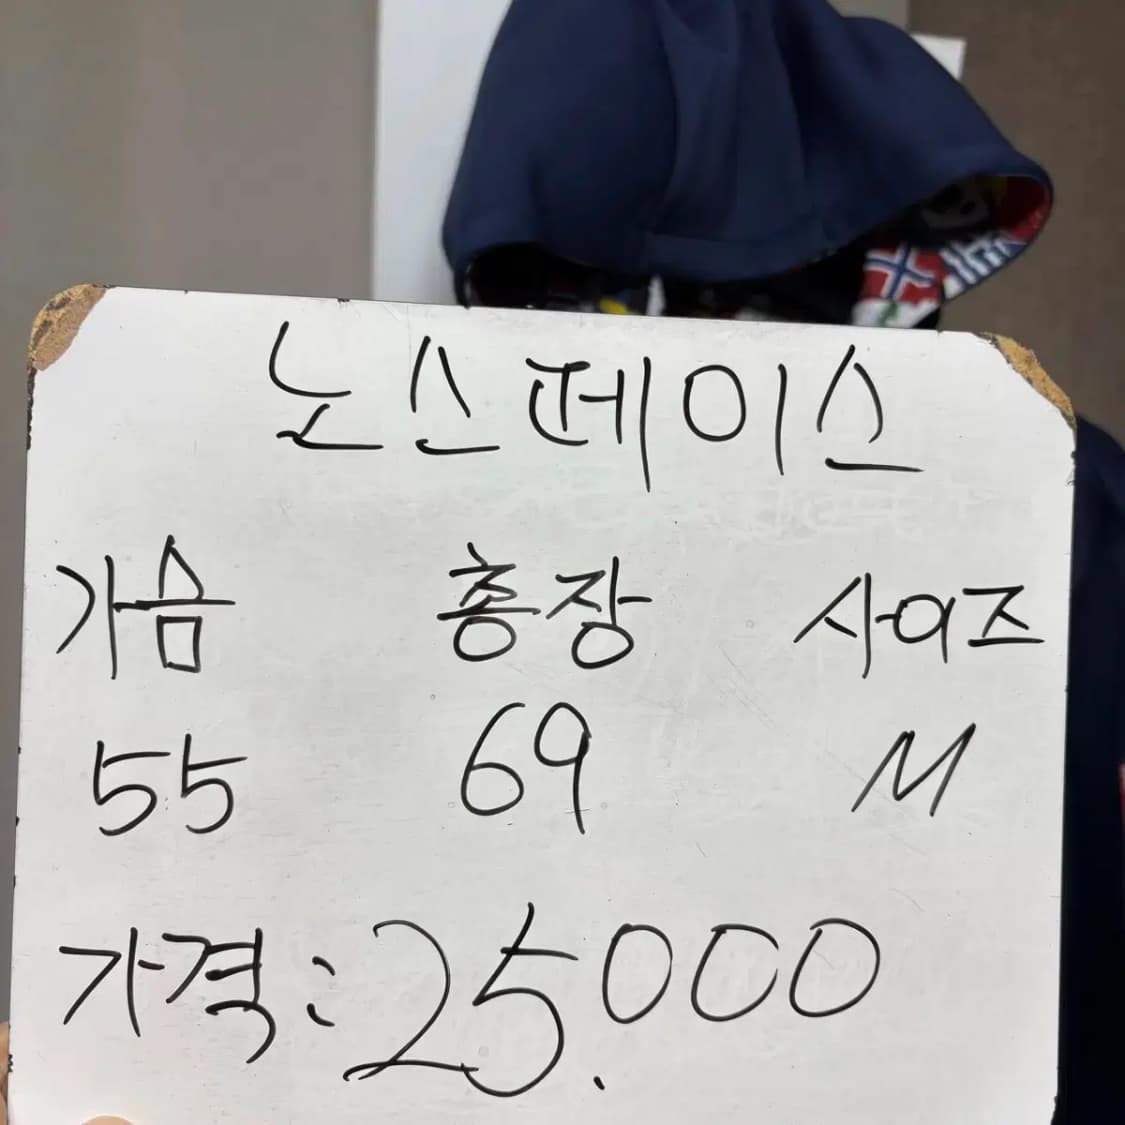 노스페이스
가슴 총장 사이즈
55 69 M
가격: 25.000